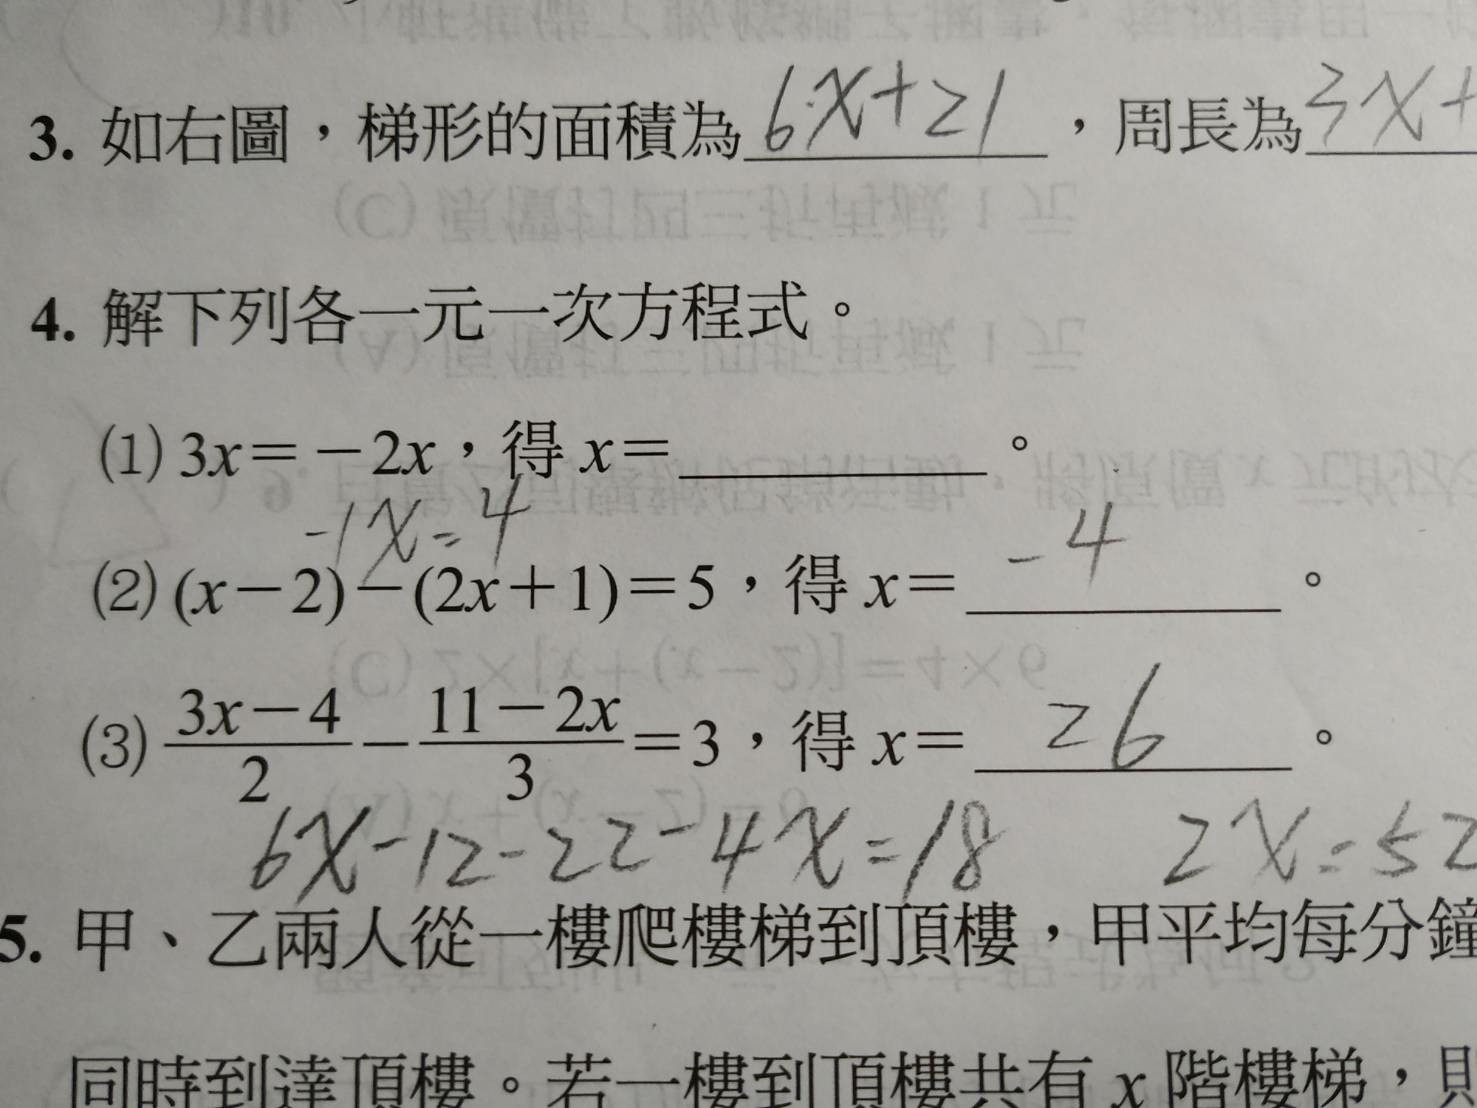 3. 如右圖，梯形的面積為6x+21，周長為3x+
4. 解下列各一元一次方程式。
(1) 3x=-2x，得 x=________。
-1x=4
(2) (x-2)-(2x+1)=5，得 x=-4。
(3) \frac{3x-4}{2}-\frac{11-2x}{3}=3，得 x=26。
6x-12-22-4x=18 2x=52
5. 甲、乙兩人從一樓爬樓梯到頂樓，甲平均每分鐘
同時到達頂樓。若一樓到頂樓共有 x 階樓梯，則